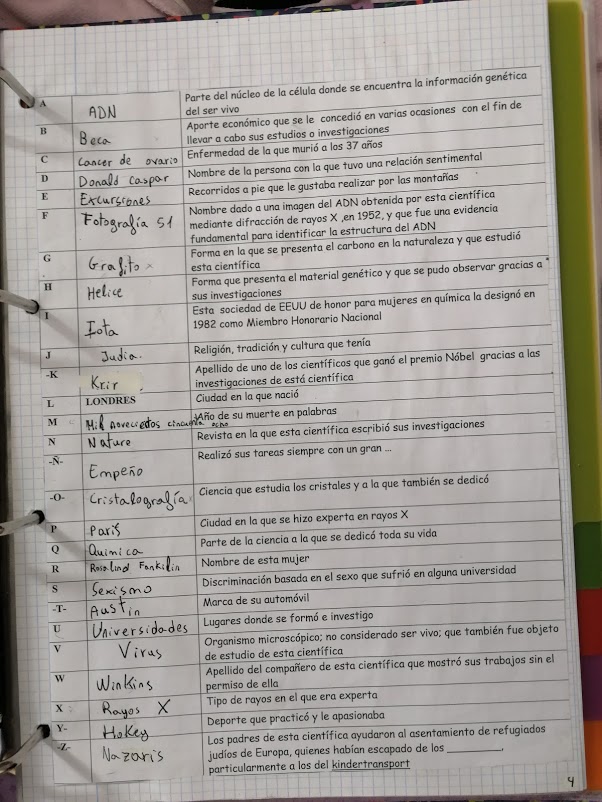 A ADN Parte del núcleo de la célula donde se encuentra la información genética
del ser vivo
B Beca Aporte económico que se le concedió en varias ocasiones con el fin de
llevar a cabo sus estudios o investigaciones
C Cancer de ovario Enfermedad de la que murió a los 37 años
D Donald Caspar Nombre de la persona con la que tuvo una relación sentimental
E Excursiones Recorridos a pie que le gustaba realizar por las montañas
F Fotografía 51 Nombre dado a una imagen del ADN obtenida por esta científica
mediante difracción de rayos X ,en 1952, y que fue una evidencia
fundamental para identificar la estructura del ADN
G Grafito Forma en la que se presenta el carbono en la naturaleza y que estudió
esta científica
H Helice Forma que presenta el material genético y que se pudo observar gracias a
sus investigaciones
I Iota Esta sociedad de EEUU de honor para mujeres en química la designó en
1982 como Miembro Honorario Nacional
J Judia. Religión, tradición y cultura que tenía
-K Krir Apellido de uno de los científicos que ganó el premio Nóbel gracias a las
investigaciones de está científica
L LONDRES Ciudad en la que nació
M Mil noveciedos cincuenta ocho Año de su muerte en palabras
N Nature Revista en la que esta científica escribió sus investigaciones
-Ñ- Empeño Realizó sus tareas siempre con un gran ...
-O- Cristalografía Ciencia que estudia los cristales y a la que también se dedicó
P París Ciudad en la que se hizo experta en rayos X
Q Quimica Parte de la ciencia a la que se dedicó toda su vida
R Rosalind Fankilin Nombre de esta mujer
S Sexismo Discriminación basada en el sexo que sufrió en alguna universidad
-T- Austin Marca de su automóvil
U Universidades Lugares donde se formó e investigo
V Virus Organismo microscópico; no considerado ser vivo; que también fue objeto
de estudio de esta científica
W Winkins Apellido del compañero de esta científica que mostró sus trabajos sin el
permiso de ella
X Rayos X Tipo de rayos en el que era experta
Y- Hokey Deporte que practicó y le apasionaba
-Z- Nazaris Los padres de esta científica ayudaron al asentamiento de refugiados
judíos de Europa, quienes habían escapado de los ________,
particularmente a los del kindertransport
4